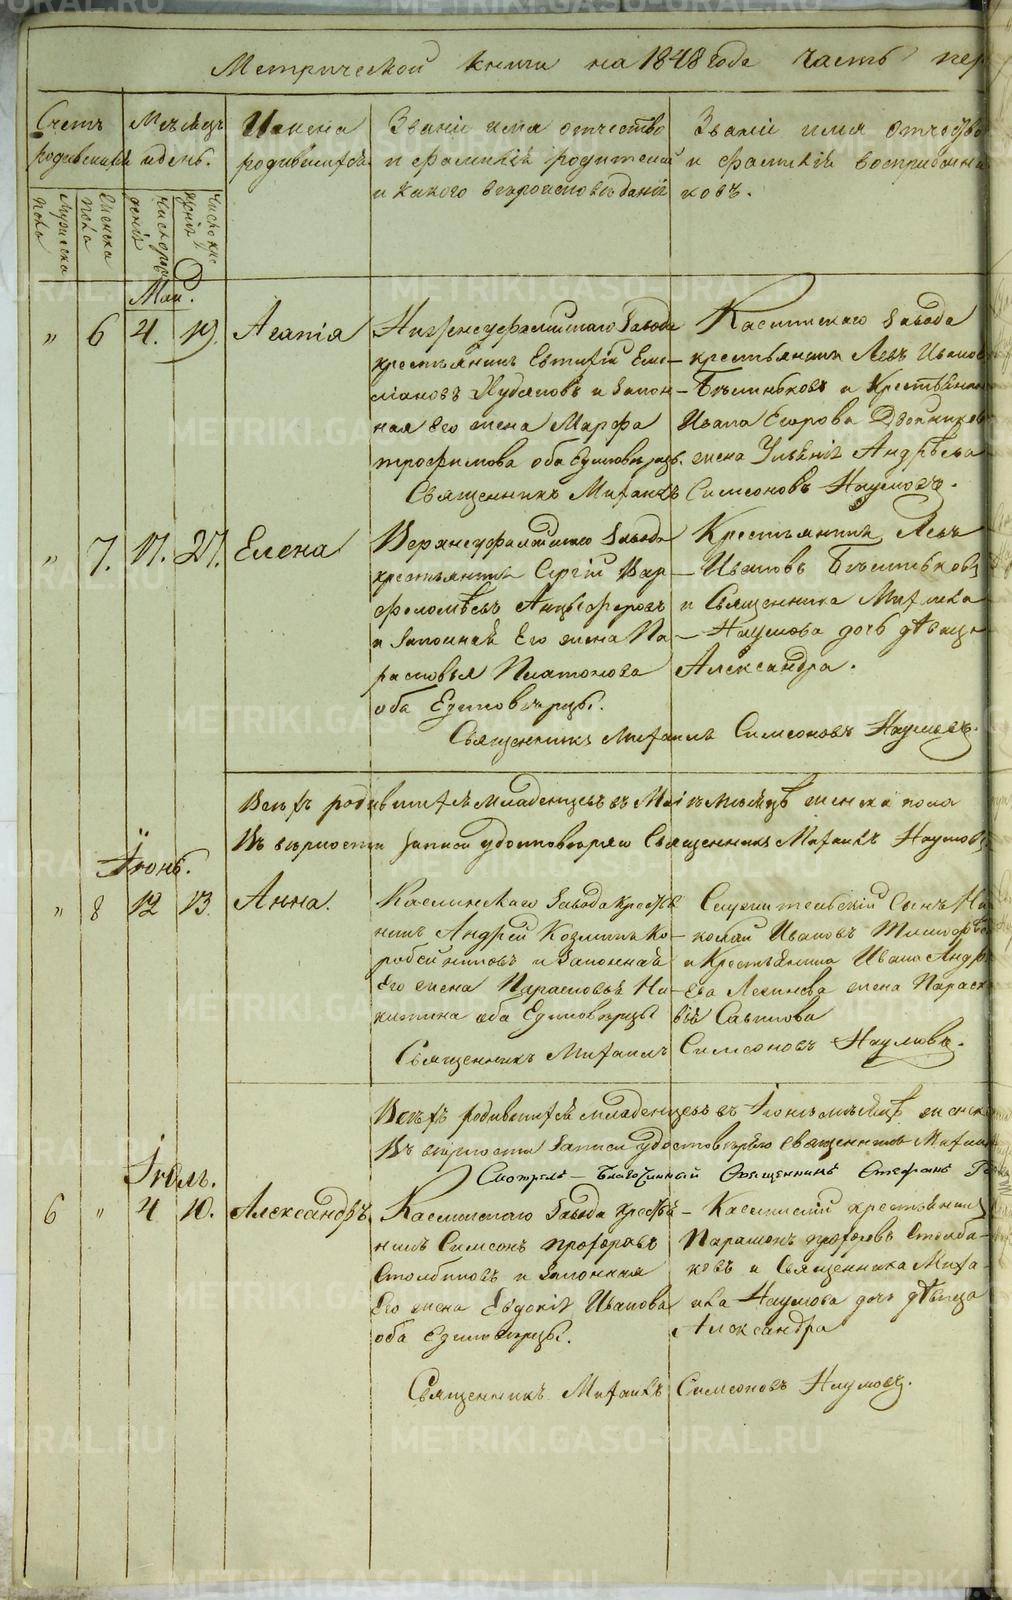 Метрической книги на 1848 года часть пер
Счетъ родившихся
Мѣсяцъ и день.
Имена родившихся
Званіе имя отчество и фамилій родителей и какого вѣроисповѣданія
Званіе имя отчество и фамилій воспріемниковъ.
мужеска пола
женска пола
число рожденія
число крещенія
Май.
" 6 4. 19. Агапія
Нижнеуфалейскаго Завода
крестьянинъ Евтифій Еме-
ліановъ Худяковъ и Закон-
ная Его жена Марфа
трофимова оба Единовѣрцы.
Каслинскаго Завода
крестьянинъ Левъ Иванов
и Крестьянина
Ивана Егорова Двойников
жена Ульянія Андрѣева
Священникъ Михаилъ Симеоновъ Наумовъ.
" 7. 17. 27. Елена
Верхнеуфалейскаго Завода
крестьянинъ Сергій Вар
фоломѣевъ Анцыферовъ
и Законная Его жена Па
расковья Платонова
оба Единовѣрцы.
Крестьянинъ Левъ
Ивановъ
и Священника Михаила
Наумова дочь дѣвица
Александра.
Священникъ Михаилъ Симеоновъ Наумовъ.
Всѣхъ родившихся младенцевъ въ Маіѣ мѣсяцѣ женска пола
Въ верности записи удостовѣряю Священникъ Михаилъ Наумовъ
Іюнь.
" 8 12 13. Анна.
Каслинскаго Завода Крестья
нинъ Андрей Козминъ Ко-
робейниковъ и Законная
Его жена Парасковья Ни-
китина оба Единовѣрцы
Служительскій Сынъ Ни
колай Ивановъ
и Крестьянина Ивана Андр
ева жена Параск
вія Савинова
Священникъ Михаилъ Симеоновъ Наумовъ.
Всѣхъ родившихся младенцевъ въ Іюнѣ мѣсяцѣ женска
Въ верности Записи удостовѣряю священникъ Михаил
Смотрелъ Благочинный Священникъ Стефанъ
Іюль.
6 " 4 10. Александръ
Каслинскаго Завода крестья
нинъ Симеонъ прохоровъ
Столбиковъ и Законная
Его жена Евдокія Иванова
оба Единовѣрцы.
Каслинскій крестьянинъ
Парамонъ прохоровъ Столби-
ковъ и Священника Миха-
ила Наумова дочь дѣвица
Александра
Священникъ Михаилъ Симеоновъ Наумовъ.
METRIKI.GASO-URAL.RU